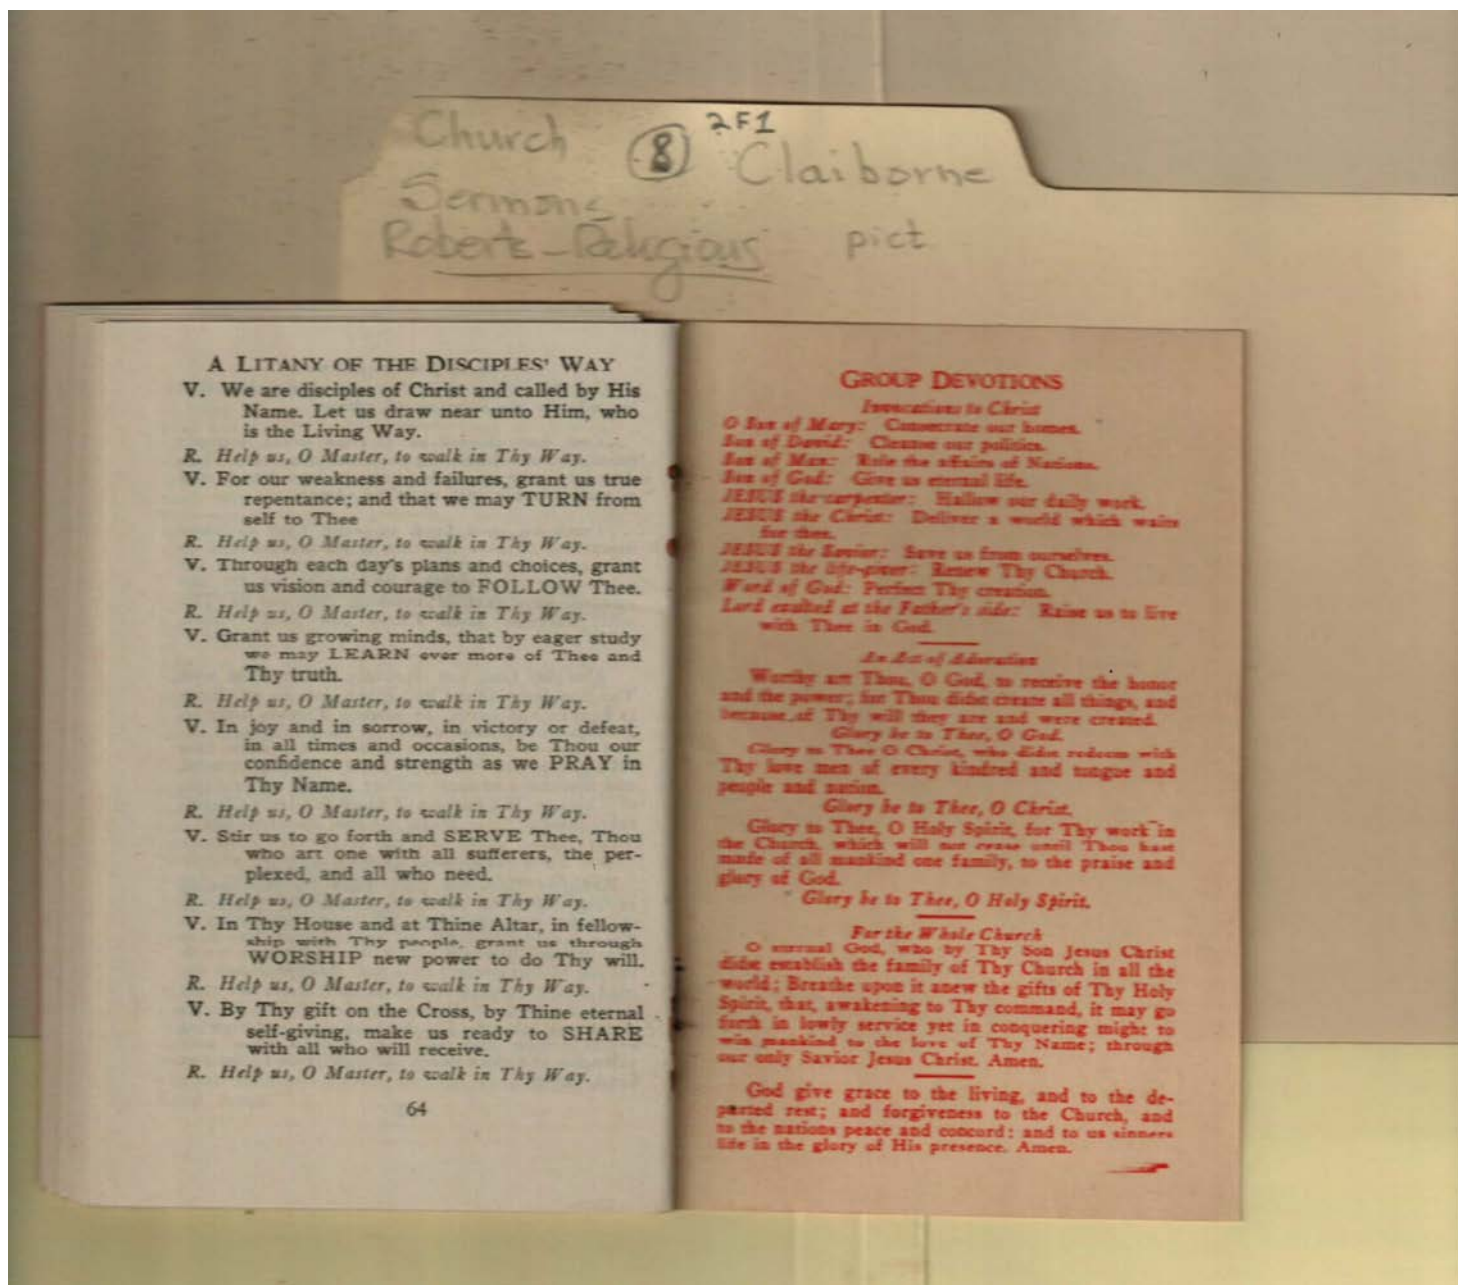 Church ⑧ 2F1 Claiborne
Sermons
Roberts-Religious pict.
A LITANY OF THE DISCIPLES' WAY
V. We are disciples of Christ and called by His
Name. Let us draw near unto Him, who
is the Living Way.
R. Help us, O Master, to walk in Thy Way.
V. For our weakness and failures, grant us true
repentance; and that we may TURN from
self to Thee
R. Help us, O Master, to walk in Thy Way.
V. Through each day's plans and choices, grant
us vision and courage to FOLLOW Thee.
R. Help us, O Master, to walk in Thy Way.
V. Grant us growing minds, that by eager study
we may LEARN ever more of Thee and
Thy truth.
R. Help us, O Master, to walk in Thy Way.
V. In joy and in sorrow, in victory or defeat,
in all times and occasions, be Thou our
confidence and strength as we PRAY in
Thy Name.
R. Help us, O Master, to walk in Thy Way.
V. Stir us to go forth and SERVE Thee, Thou
who art one with all sufferers, the per-
plexed, and all who need.
R. Help us, O Master, to walk in Thy Way.
V. In Thy House and at Thine Altar, in fellow-
ship with Thy people, grant us through
WORSHIP new power to do Thy will.
R. Help us, O Master, to walk in Thy Way.
V. By Thy gift on the Cross, by Thine eternal
self-giving, make us ready to SHARE
with all who will receive.
R. Help us, O Master, to walk in Thy Way.
64
GROUP DEVOTIONS
Invocations to Christ
O Son of Mary: Consecrate our homes.
Son of David: Cleanse our politics.
Son of Man: Rule the affairs of Nations.
Son of God: Give us eternal life.
JESUS the carpenter: Hallow our daily work.
JESUS the Christ: Deliver a world which waits
for thee.
JESUS the Savior: Save us from ourselves.
JESUS the life-giver: Renew Thy Church.
Word of God: Perfect Thy creation.
Lord exalted at the Father's side: Raise us to live
with Thee in God.
An Act of Adoration
Worthy art Thou, O God, to receive the honor
and the power; for Thou didst create all things, and
because of Thy will they are and were created.
Glory be to Thee, O God.
Glory to Thee O Christ, who didst redeem with
Thy love men of every kindred and tongue and
people and nation.
Glory be to Thee, O Christ.
Glory to Thee, O Holy Spirit, for Thy work in
the Church, which will not cease until Thou hast
made of all mankind one family, to the praise and
glory of God.
Glory be to Thee, O Holy Spirit.
For the Whole Church
O eternal God, who by Thy Son Jesus Christ
didst establish the family of Thy Church in all the
world; Breathe upon it anew the gifts of Thy Holy
Spirit, that, awakening to Thy command, it may go
forth in lowly service yet in conquering might to
win mankind to the love of Thy Name; through
our only Savior Jesus Christ. Amen.
God give grace to the living, and to the de-
parted rest; and forgiveness to the Church, and
to the nations peace and concord; and to us sinners
life in the glory of His presence. Amen.